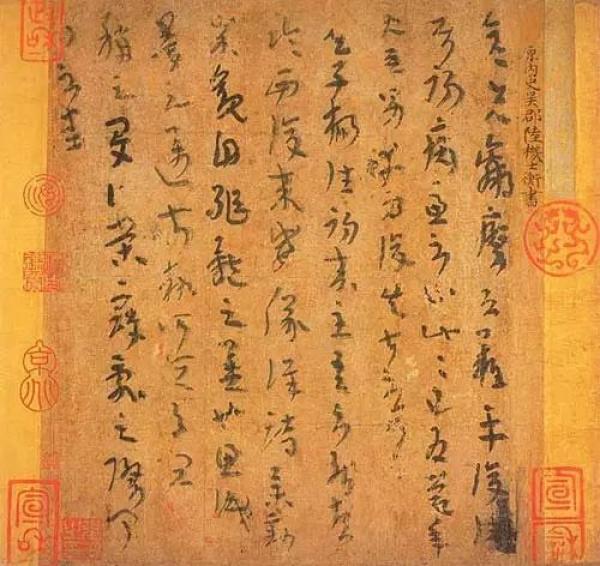 晉內史吳郡陸機士衡書
彦先羸瘵恐難平復往屬
初病慮不止此此已為慶承
使唯男幸為復失前憂耳
吳子楊往初來主吾不能盡
臨西復來威儀詳跱舉動
成觀自軀體之美也思識
量之邁前執所恒有宜
稱之夏伯榮寇亂之際聞
問不悉
宣和